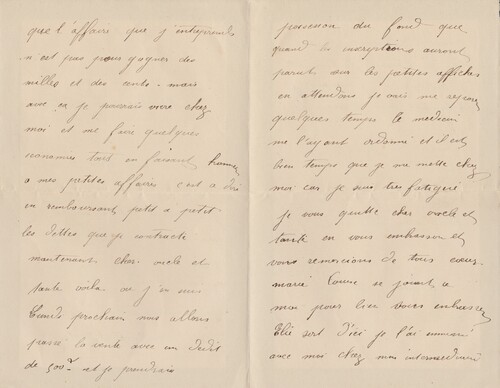 que l'affaire que j'entreprends
n est pas pour gagner des
milles et des cents - mais
avec ça je pourrais vivre chez
moi et me faire quelques
économies tout en faisant honneur
a mes petites affaires c'est a dire
en remboursant petit a petit
les dettes que je contracte
maintenant cher oncle et
tante voila ou j'en suis
Lundi prochain nous allons
passé la vente avec un dédit
de 500 et je prendrais
possession du fond que
quand les inscriptions auront
parut sur les petites affiches
en attendant je vais me reposer
quelques temps le medecin
me l'ayant ordonné et il est
bien temps que je me mette chez
moi car je suis tres fatigué
je vous quitte cher oncle et
tante en vous embrassant et
vous remerciant de tous coeur
marie Louise se joint a
moi pour bien vous embrasser
Elie sort d'ici je l'ai emmené
avec moi chez mon intermédiaire